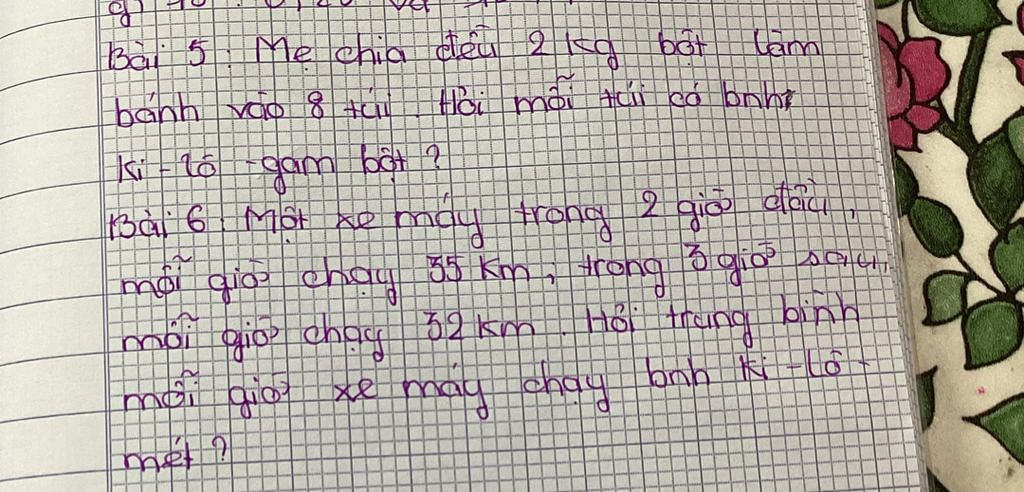 Bài 5: Mẹ chia đều 2 kg bột làm
bánh vào 8 túi. Hỏi mỗi túi có bnh
ki-lô-gam bột?
Bài 6: Một xe máy trong 2 giờ đầu,
mỗi giờ chạy 35 km, trong 3 giờ sau,
mỗi giờ chạy 32 km. Hỏi trung bình
mỗi giờ xe máy chạy bnh ki-lô-
mét?